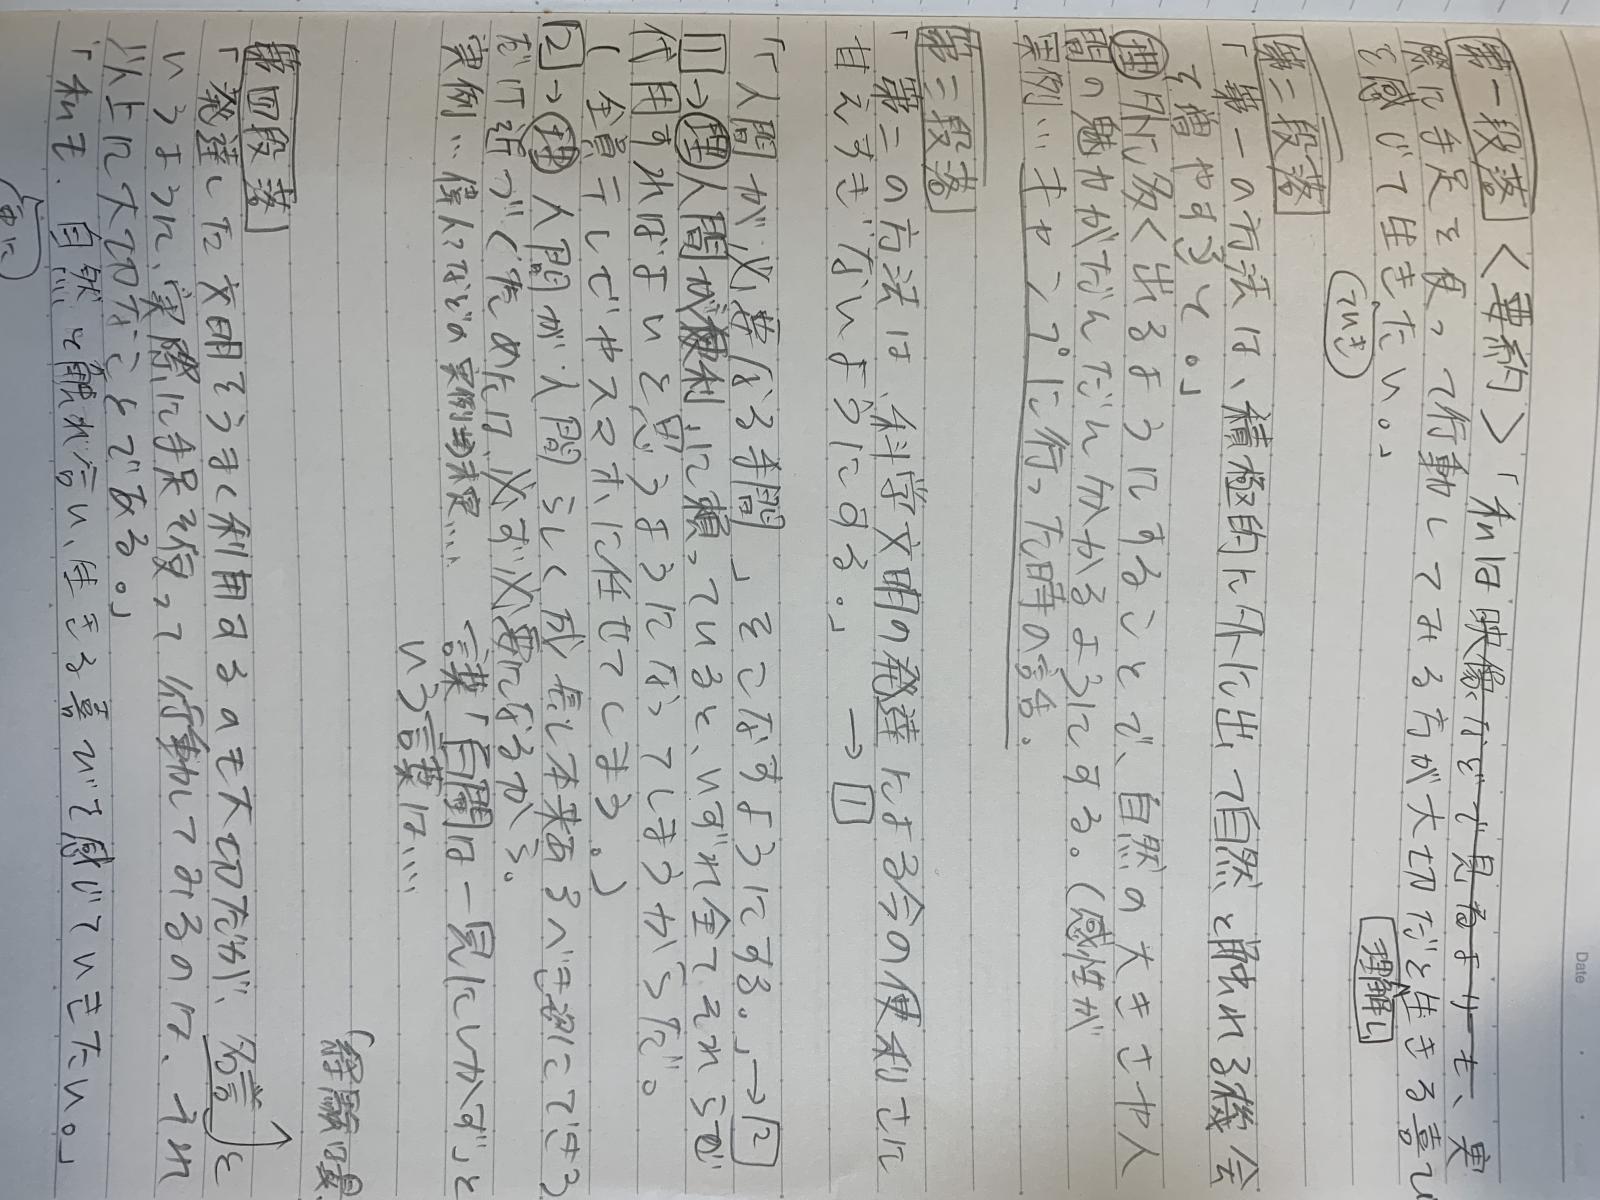 第一段落 <要約>「私は映像などで見るよりも、実
際に手足を使って行動してみる方が大切だと生きる喜び
を感じて生きたい。」
ていき
理解し
第二段落
「第一の方法は、積極的に外に出て自然と触れる機会
を増やすこと。」
理 外に多く出るようにすることで、自然の大きさや人
間の魅力がだんだん分かるようにする。(感性が
実例…キャンプに行った時の話。
第三段落
「第二の方法は、科学文明の発達による今の便利さに
甘えすぎないようにする。」→1
「「人間が必要なる手間」をこなすようにする。」→2
1→理 人間が便利に頼っていると、いずれ全てそれらで
代用すればよいと思うようになってしまうからだ。
(全員干してやスマホに任せてしまう。)
2→理 人間が人間らしく成長し本来あるべき姿にできる
だけ近づくためには、必ず必要になるから。
実例…偉人などの実例募集…
諺「百聞は一見にしかず」と
いう言葉は…
第四段落
「発達した文明をうまく利用するのも大切だが、
いうように、実際に手足を使って行動してみるのは、それ
以上に大切なことである。」
「私も、自然と触れ合い、生きる喜びを感じていきたい。」